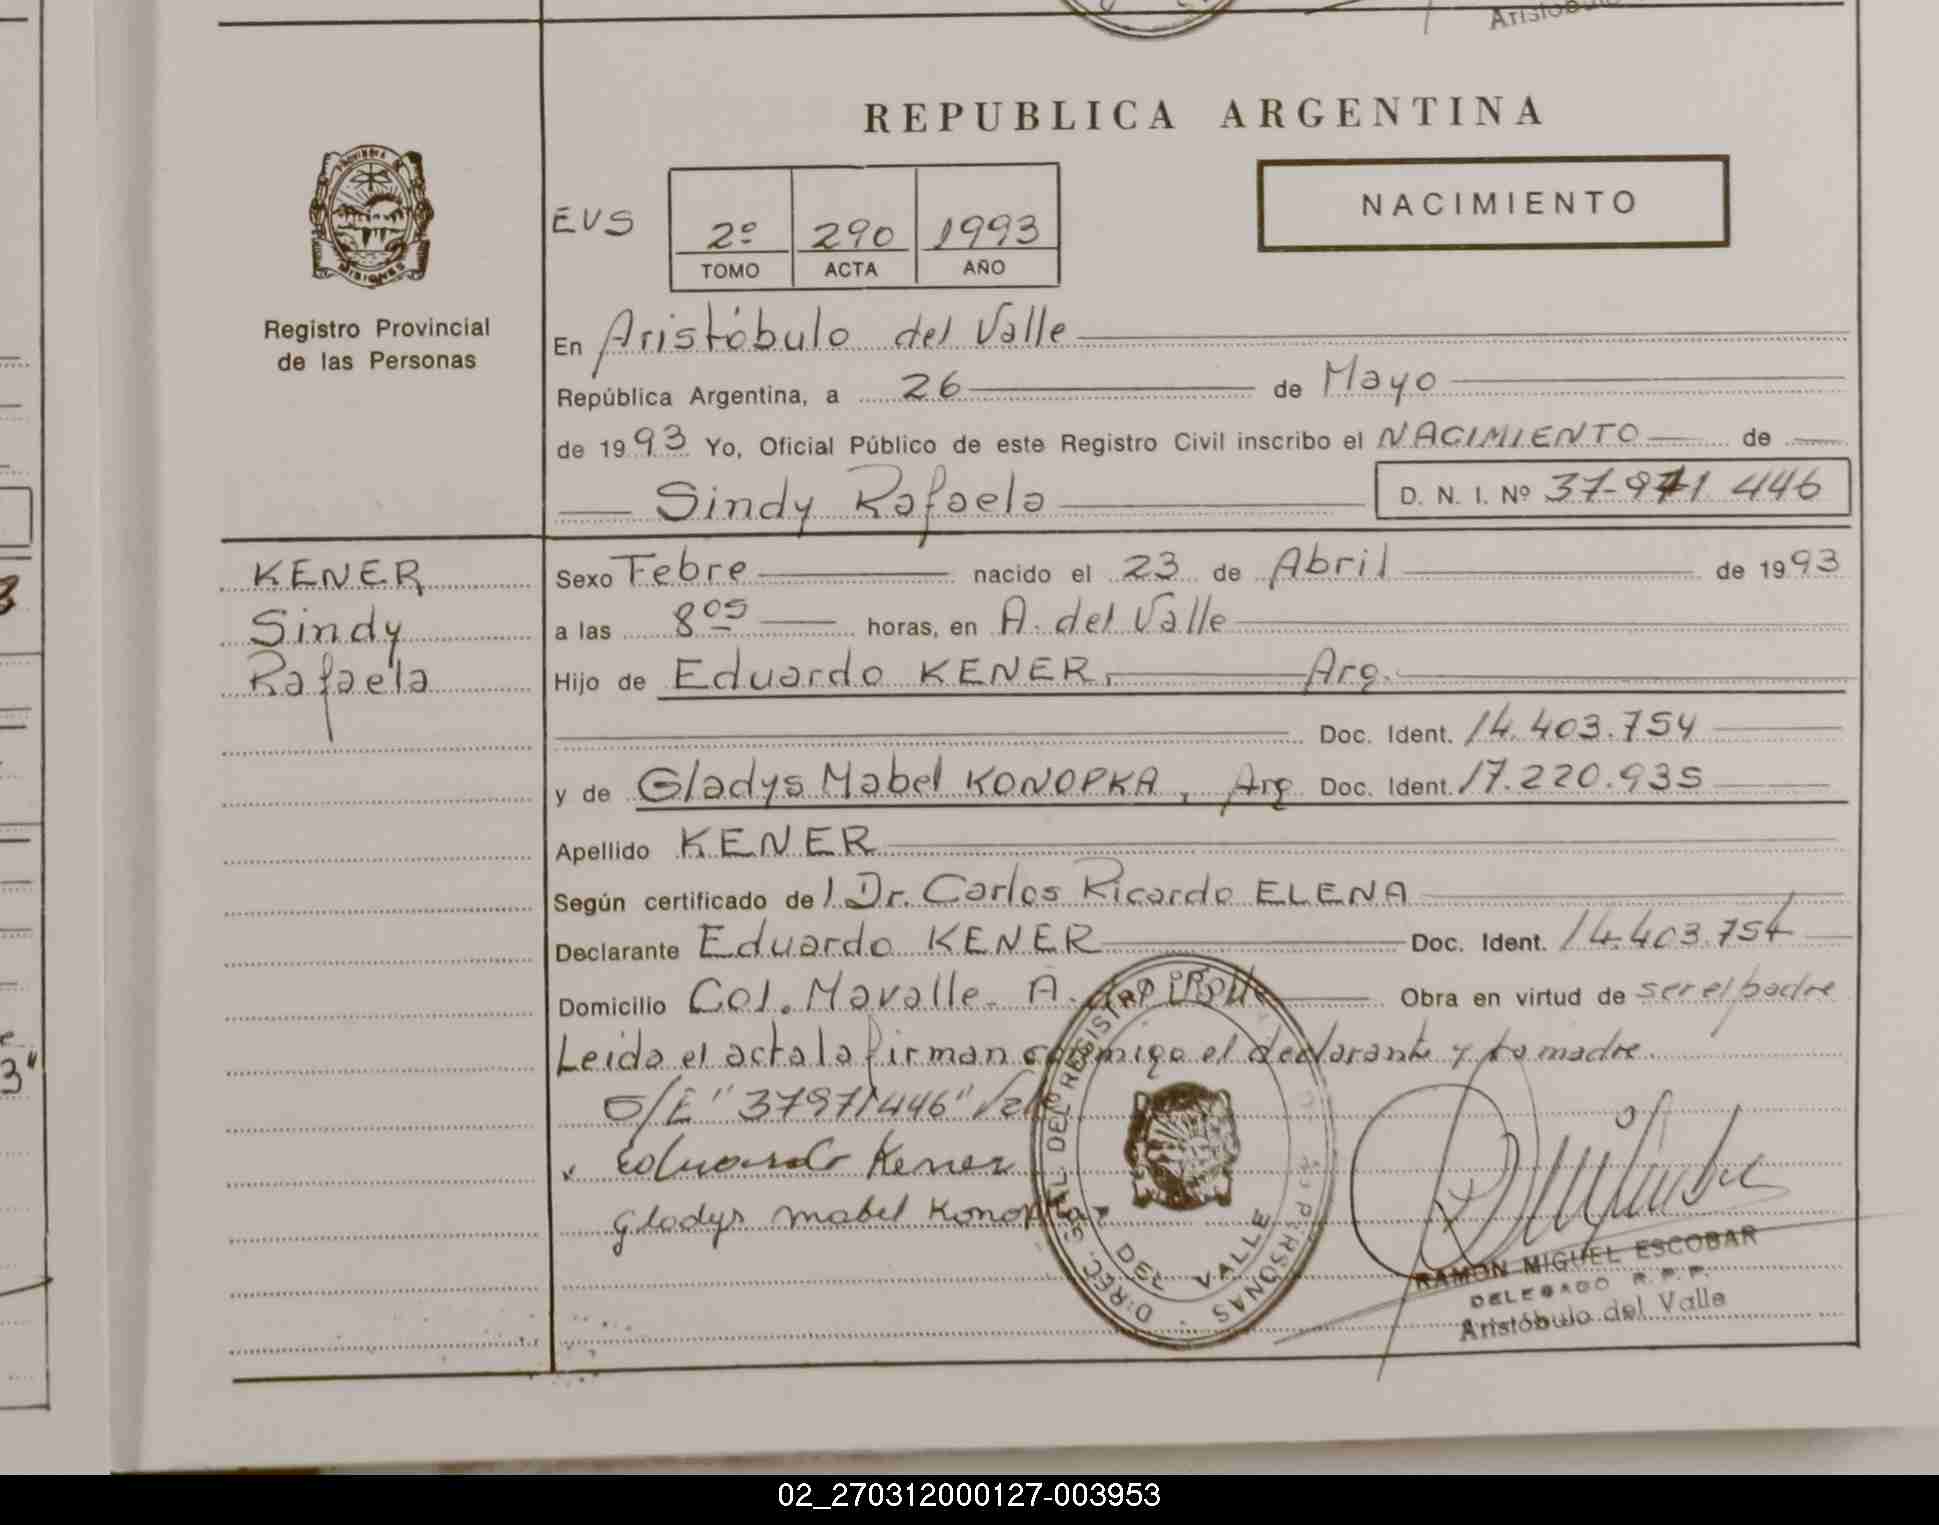 Aristóbulo
REPUBLICA ARGENTINA
PROVINCIA DE
MISIONES
Registro Provincial
de las Personas
EVS
2º 290 1993
TOMO ACTA AÑO
NACIMIENTO
En Aristóbulo del Valle
República Argentina, a 26 de Mayo
de 1993 Yo, Oficial Público de este Registro Civil inscribo el NACIMIENTO de
Sindy Rafaela D. N. I. Nº 37-971 446
KENER
Sindy
Rafaela
Sexo Febre nacido el 23 de Abril de 1993
a las 8 05 horas, en A. del Valle
Hijo de Eduardo KENER, Arg.
Doc. Ident. 14.403.754
y de Gladys Mabel KONOPKA, Arg Doc. Ident. 17.220.935
Apellido KENER
Según certificado de l Dr. Carlos Ricardo ELENA
Declarante Eduardo KENER Doc. Ident. 14.403.754
Domicilio Col. Mavalle - A. del Valle Obra en virtud de ser el padre
Leida el acta la firman conmigo el declarante y la madre.
S/E "37971446" Vale
x Eduardo Kener
gladys mabel Konopka
DIREC. GRAL. DEL REGISTRO PROV. DE LAS PERSONAS
DEL VALLE
RAMON MIGUEL ESCOBAR
DELEGADO R.P.P.
Aristóbulo del Valle
3"
02_270312000127-003953